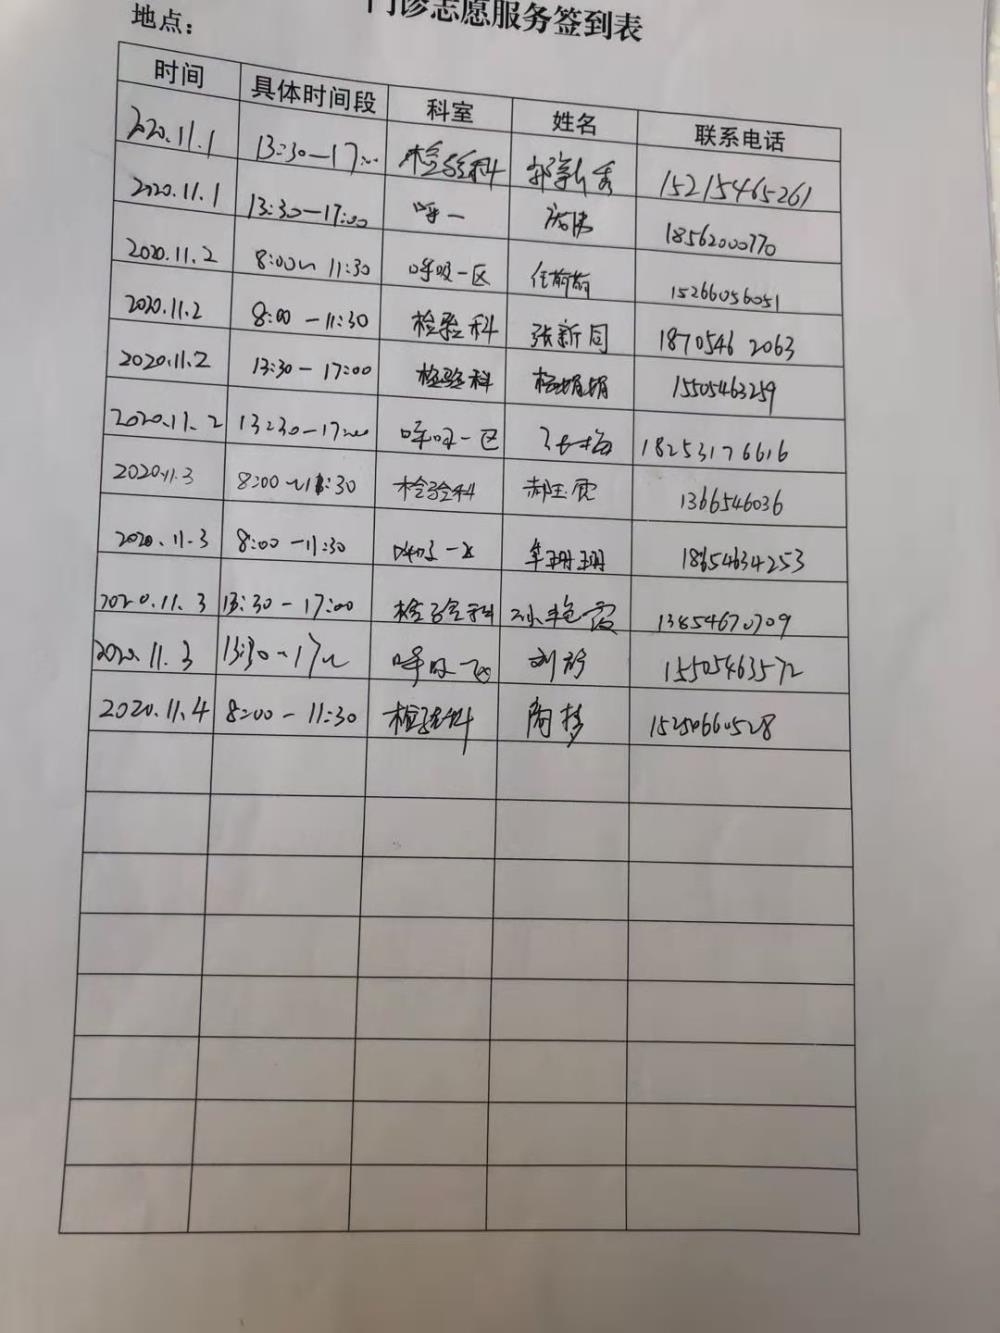 门诊志愿服务签到表
地点：
时间 具体时间段 科室 姓名 联系电话
2020.11.1 13:30—17:00 检验科 郭新秀 15215465261
2020.11.1 13:30—17:00 呼一 18562000770
2020.11.2 8:00~11:30 呼吸一区 任前前 15266056051
2020.11.2 8:00—11:30 检验科 张新同 18705462063
2020.11.2 13:30—17:00 检验科 杨娟娟 15505463259
2020.11.2 13:30—17:00 呼吸一区 18253176616
2020.11.3 8:00~11:30 检验科 1366546036
2020.11.3 8:00—11:30 呼吸一区 牟珊珊 18654634253
2020.11.3 13:30—17:00 检验科 孙艳霞 13854670709
2020.11.3 13:30—17:00 呼吸一区 15505463572
2020.11.4 8:00—11:30 检验科 陶梦 15250660528